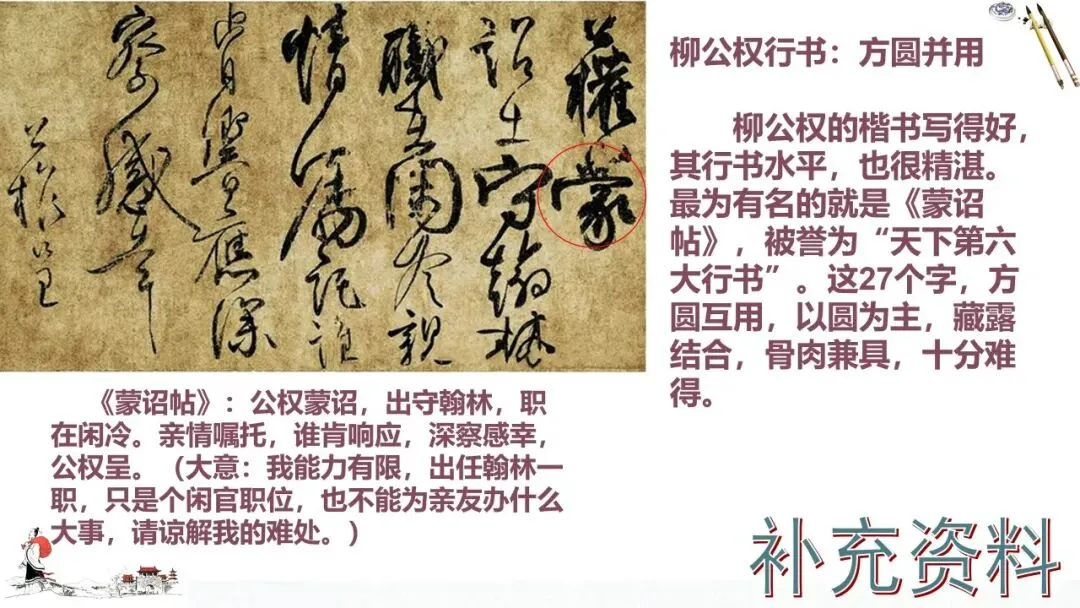 公權蒙
詔出守翰林
職在閑冷親
情囑託誰
肯響應深
察感幸
公權呈
柳公权行书：方圆并用
柳公权的楷书写得好，
其行书水平，也很精湛。
最为有名的就是《蒙诏
帖》，被誉为“天下第六
大行书”。这27个字，方
圆互用，以圆为主，藏露
结合，骨肉兼具，十分难
得。
《蒙诏帖》：公权蒙诏，出守翰林，职
在闲冷。亲情嘱托，谁肯响应，深察感幸，
公权呈。（大意：我能力有限，出任翰林一
职，只是个闲官职位，也不能为亲友办什么
大事，请谅解我的难处。）
补充资料